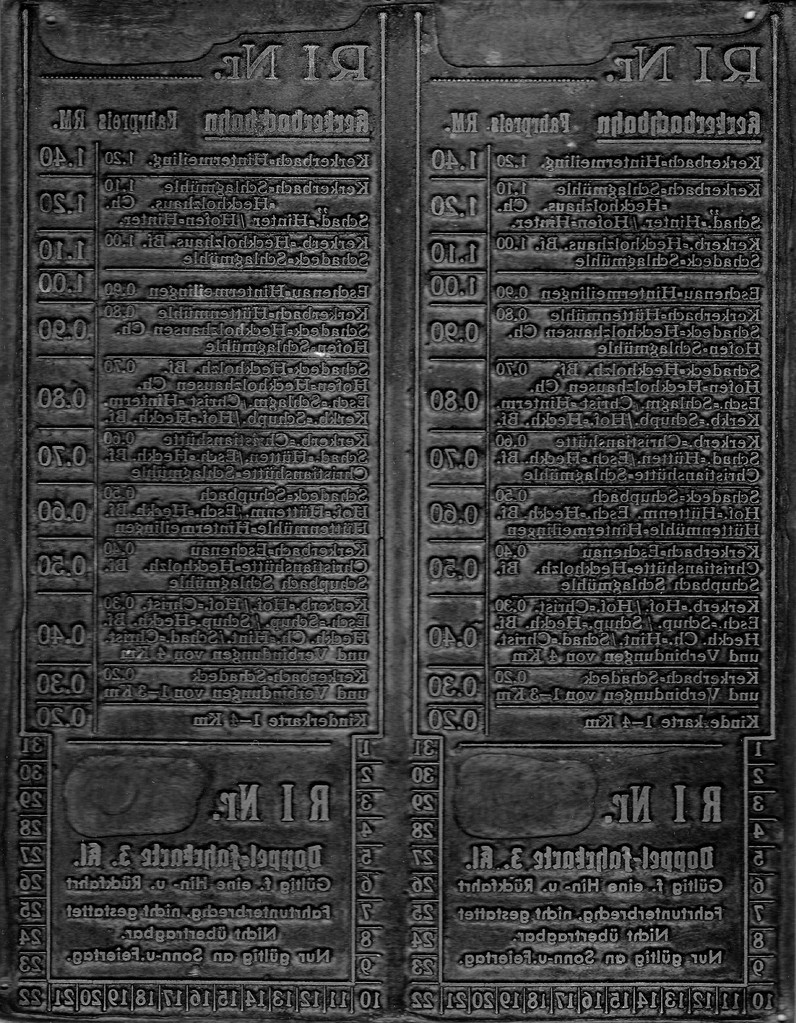 R I Nr.
Kerkerbachbahn Fahrpreis RM.
Kerkerbach=Hintermeiling. 1.20 1.40
Kerkerbach=Schlagmühle 1.10
„ =Heckholzhaus. Ch. 1.20
Schad.=Hinter./Hofen=Hinter.
Kerkerb.=Heckholzhaus. Bf. 1.00 1.10
Schadeck=Schlagmühle
Eschenau=Hintermeilingen 0.90 1.00
Kerkerbach=Hüttenmühle 0.80
Schadeck=Heckholzhausen Ch. 0.90
Hofen=Schlagmühle
Schadeck=Heckholzh. Bf. 0.70
Hofen=Heckholzhausen Ch.
Esch.=Schlagm./Christ=Hinterm. 0.80
Kerkb.=Schupb./Hof.=Heckh. Bf.
Kerkerb.=Christianshütte 0.60
Schad.=Hütten./Esch.=Heckh. Bf. 0.70
Christianshütte=Schlagmühle
Schadeck=Schupbach 0.50
Hof.=Hüttenm. Esch.=Heckh. Bf. 0.60
Hüttenmühle=Hintermeilingen
Kerkerbach=Eschenau 0.40
Christianshütte=Heckholzh. Bf. 0.50
Schupbach Schlagmühle
Kerkerb.=Hof./Hof.=Christ. 0.30
Esch.=Schup./Schup.=Heckh. Bf.
Heckh. Ch.=Hint./Schad=Christ. 0.40
und Verbindungen von 4 Km
Kerkerbach=Schadeck 0.20 0.30
und Verbindungen von 1–3 Km
Kinderkarte 1–4 Km 0.20
R I Nr.
Doppel=Fahrkarte 3. Kl.
Gültig f. eine Hin- u. Rückfahrt
Fahrtunterbrechg. nicht gestattet
Nicht übertragbar.
Nur gültig an Sonn-u.Feiertag.
1 2 3 4 5 6 7 8 9
10 11 12 13 14 15 16 17 18 19 20 21 22
23 24 25 26 27 28 29 30 31
R I Nr.
Kerkerbachbahn Fahrpreis RM.
Kerkerbach=Hintermeiling. 1.20 1.40
Kerkerbach=Schlagmühle 1.10
„ =Heckholzhaus. Ch. 1.20
Schad.=Hinter./Hofen=Hinter.
Kerkerb.=Heckholzhaus. Bf. 1.00 1.10
Schadeck=Schlagmühle
Eschenau=Hintermeilingen 0.90 1.00
Kerkerbach=Hüttenmühle 0.80
Schadeck=Heckholzhausen Ch. 0.90
Hofen=Schlagmühle
Schadeck=Heckholzh. Bf. 0.70
Hofen=Heckholzhausen Ch.
Esch.=Schlagm./Christ=Hinterm. 0.80
Kerkb.=Schupb./Hof.=Heckh. Bf.
Kerkerb.=Christianshütte 0.60
Schad.=Hütten./Esch.=Heckh. Bf. 0.70
Christianshütte=Schlagmühle
Schadeck=Schupbach 0.50
Hof.=Hüttenm. Esch.=Heckh. Bf. 0.60
Hüttenmühle=Hintermeilingen
Kerkerbach=Eschenau 0.40
Christianshütte=Heckholzh. Bf. 0.50
Schupbach Schlagmühle
Kerkerb.=Hof./Hof.=Christ. 0.30
Esch.=Schup./Schup.=Heckh. Bf.
Heckh. Ch.=Hint./Schad=Christ. 0.40
und Verbindungen von 4 Km
Kerkerbach=Schadeck 0.20 0.30
und Verbindungen von 1–3 Km
Kinderkarte 1–4 Km 0.20
R I Nr.
Doppel=Fahrkarte 3. Kl.
Gültig f. eine Hin- u. Rückfahrt
Fahrtunterbrechg. nicht gestattet
Nicht übertragbar.
Nur gültig an Sonn-u.Feiertag.
1 2 3 4 5 6 7 8 9
10 11 12 13 14 15 16 17 18 19 20 21 22
23 24 25 26 27 28 29 30 31